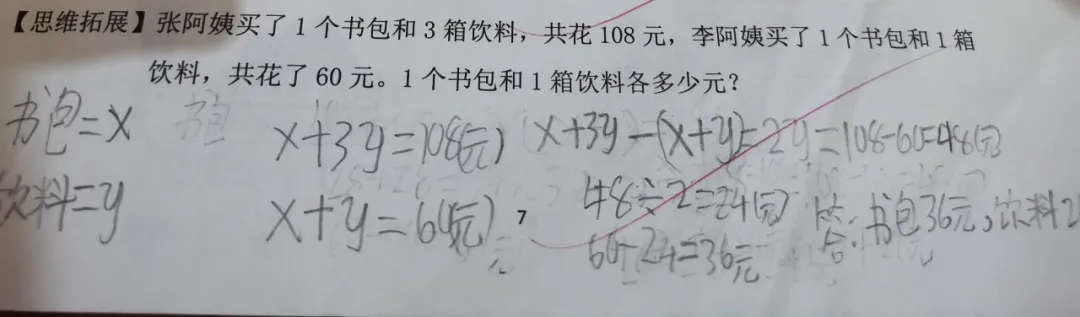 【思维拓展】张阿姨买了1个书包和3箱饮料，共花108元，李阿姨买了1个书包和1箱
饮料，共花了60元。1个书包和1箱饮料各多少元？
书包=x
x+3y=108(元)
(x+3y)-(x+y)=2y=108-60=48(元)
饮料=y
x+y=60(元)
48÷2=24(元)
60-24=36元
答:书包36元,饮料2
7